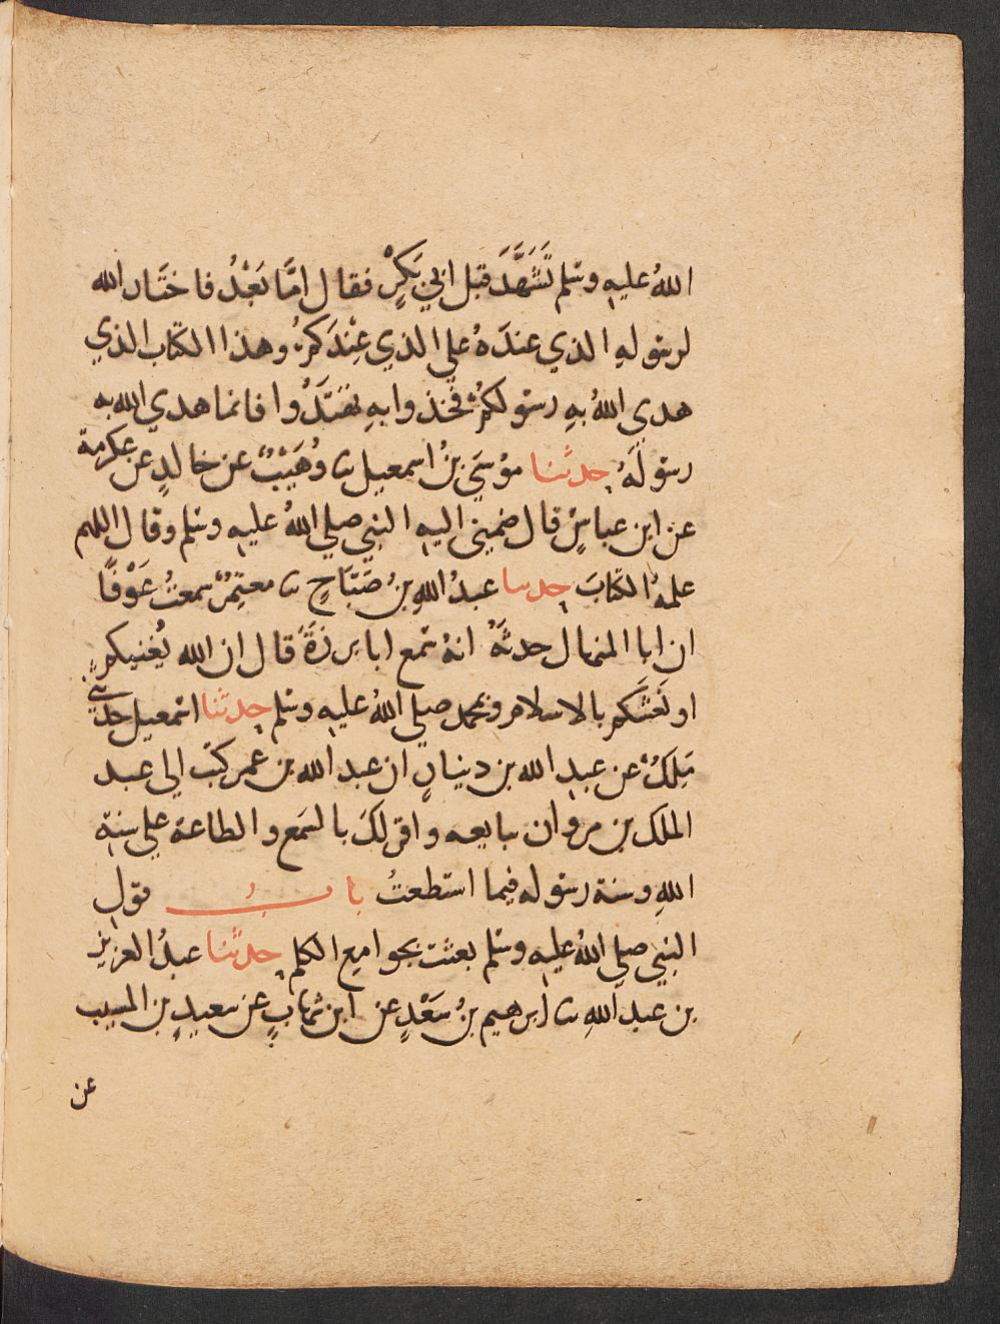 اللهُ عليه وسلم تَشَهَّدَ قبل ابي بَكرٍ فقال امَّا بَعْدُ فاختَار الله
لرسوله الذي عندَهُ علي الذي عِنْدَكمُ وهذا الكتاب الذي
هدى اللهُ بهِ رسولكمُ فخذوا بهِ تهتَدُوا فانما هدي الله به
رسولَهُ حدثنا موسَي بنُ اسمعيل ثنا وُهَيْبٌ عن خالدٍ عن عكرمة
عن ابن عباسٍ قال ضمني اليه النبي صلي اللهُ عليه وسلم وقال اللهم
علمهُ الكتابَ حدثنا عبدُ اللهِ بنُ صَبَّاحٍ ثنا معتمِرٌ سمعتُ عَوْفًا
ان ابا المنهال حدثَهُ انهُ سمع ابا برزَةَ قال ان الله يُغنيكم
او نَعَشَكم بالاسلام وبمحمد صلي اللهُ عليه وسلم حدثنا اسمعيل حدثني
مَلِكٌ عن عبدِ الله بن دينارٍ ان عبد الله بن عمر كتَب الي عبد
الملك بن مروان يبايعه واقر لكَ بالسَمع والطاعة علي سنة
اللهِ وسنة رسوله فيما استطعتُ بابُ قول
النبي صلي اللهُ عليه وسلم بعثت بجوامع الكلم حدثنا عبدُ العزيز
بن عبد اللهِ ثنا ابرهيم بنُ سَعْدٍ عن ابن شهابٍ عن سعيدٍ بن المسيب
عن